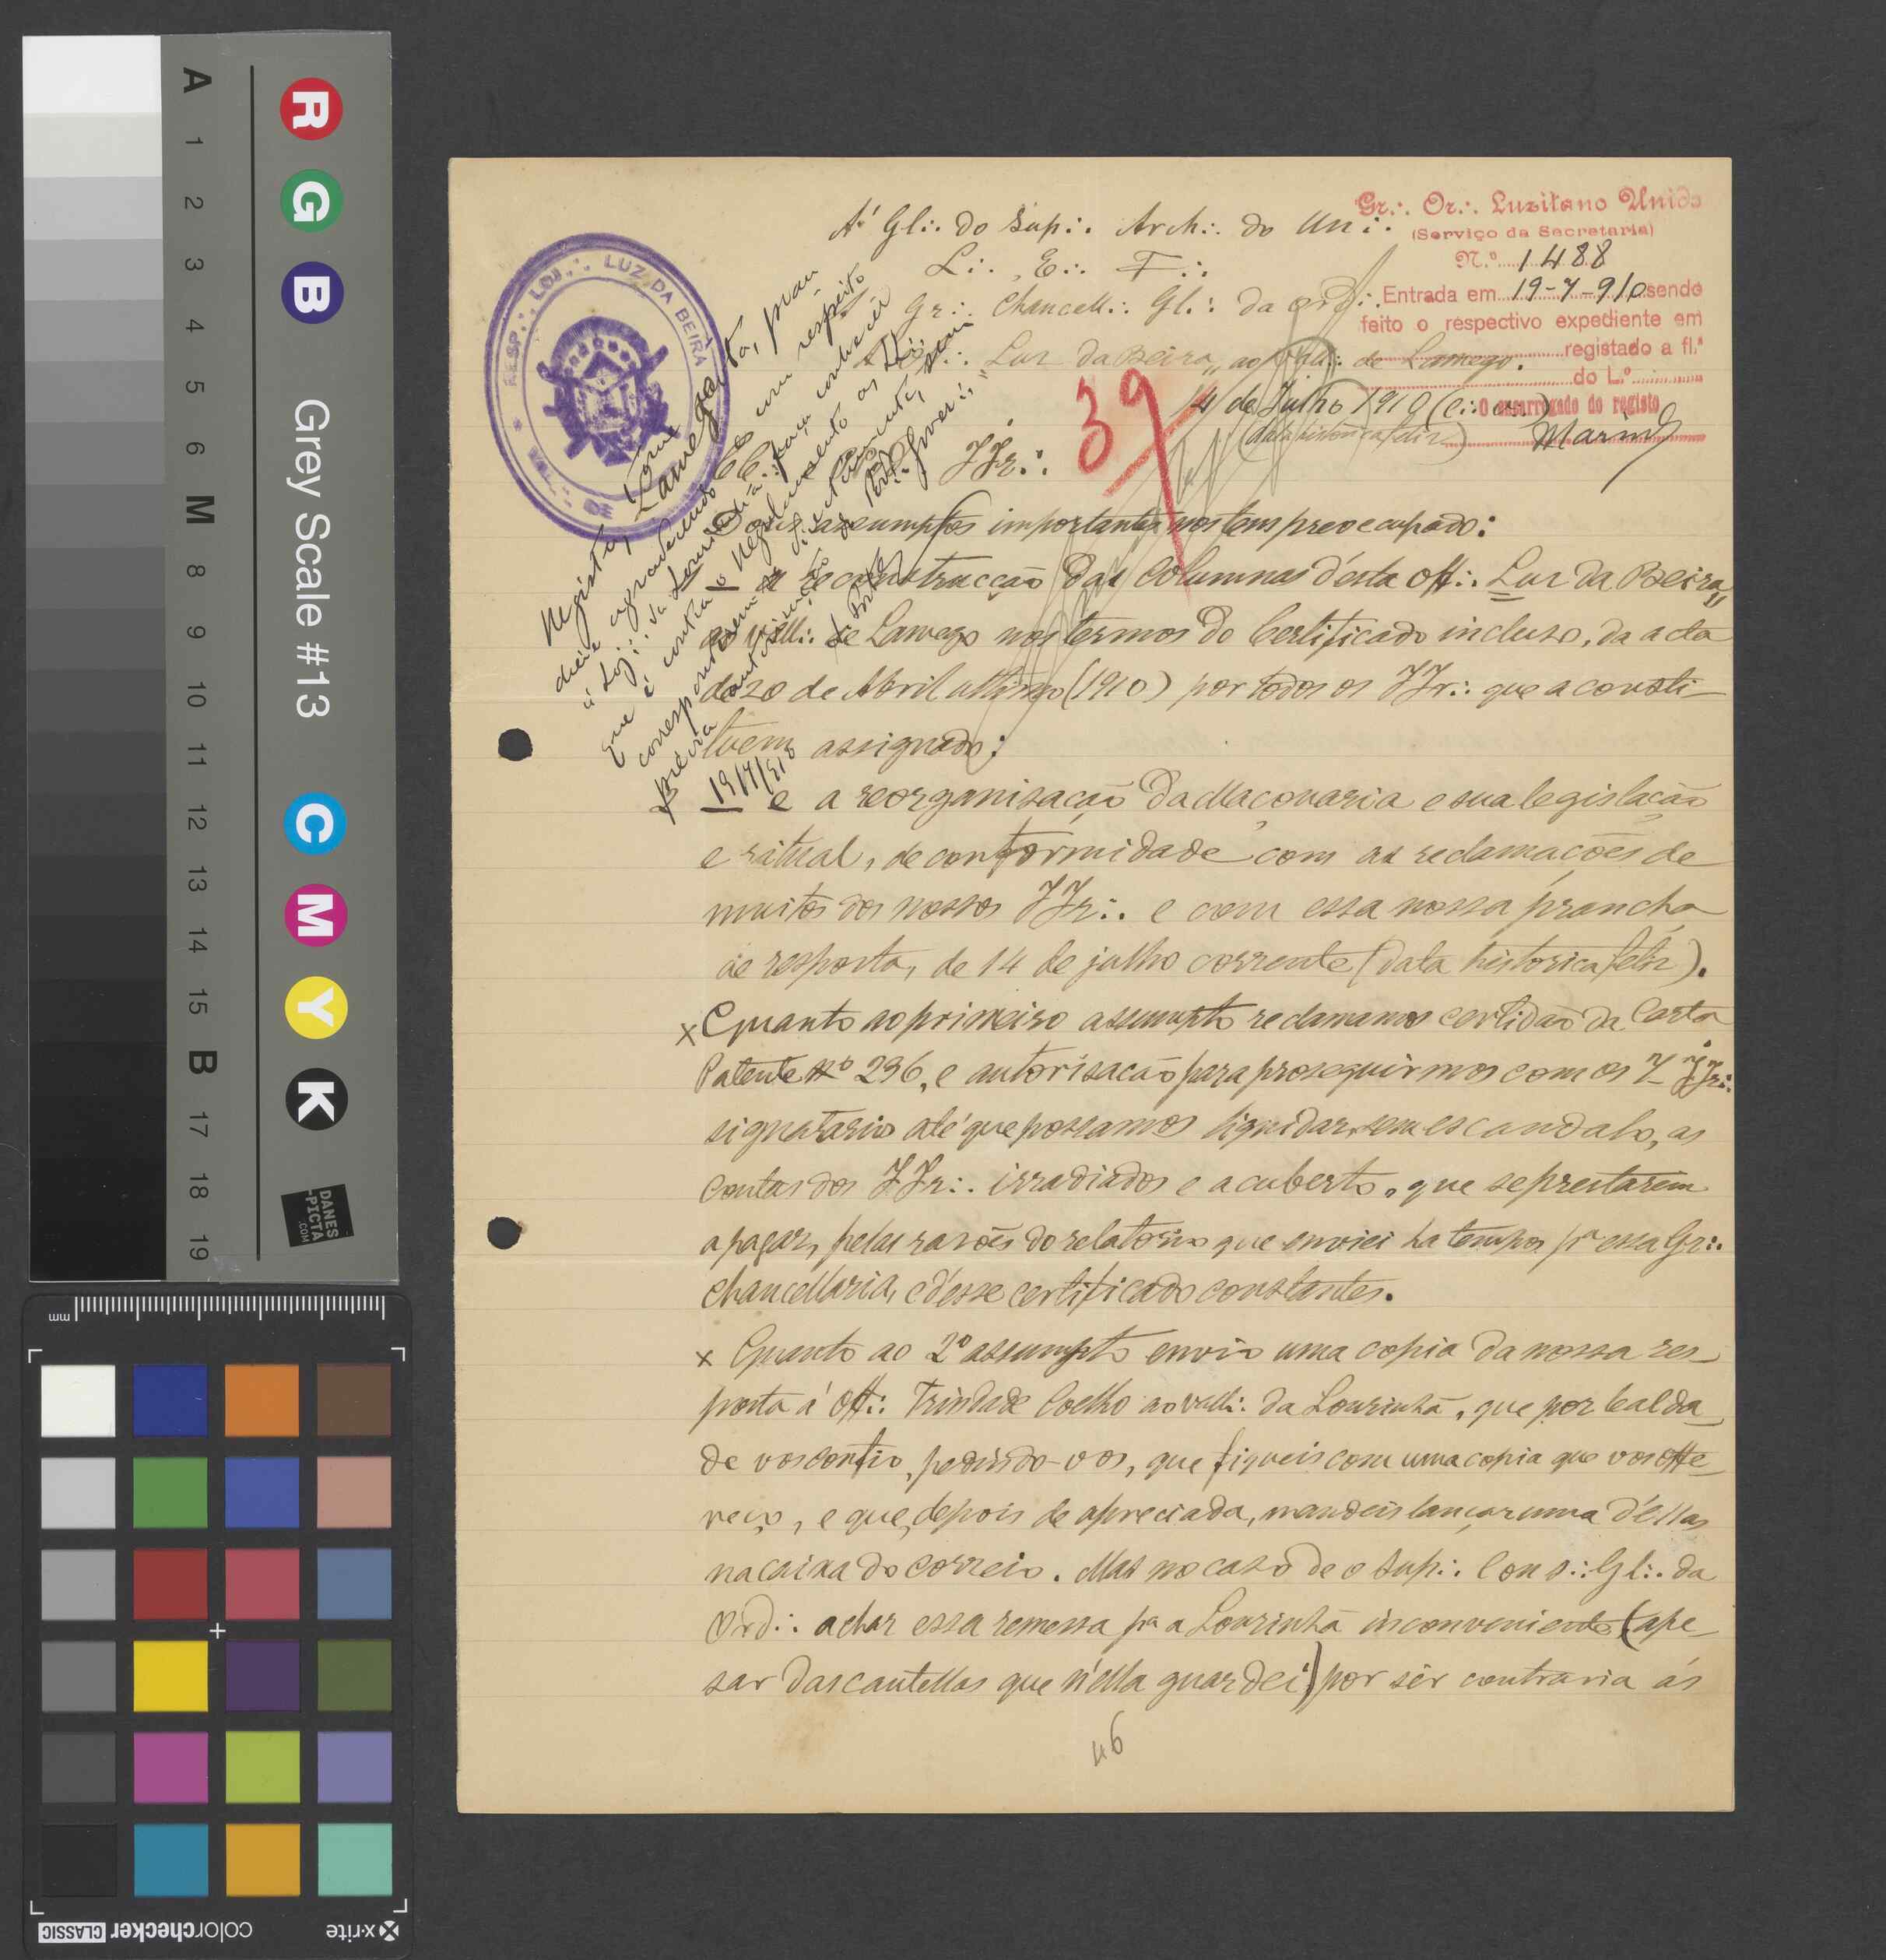 Á Gl∴ do Sup∴ Arch∴ do Un∴
L∴ E∴ F∴
Gr∴ Chancell∴ Gl∴ da Ord∴
"Luz da Beira" ao Vall∴ de Lamego.
14 de Julho 1910 (e∴ v∴)
(data historica feliz)
Gr∴ Or∴ Luzitano Unido
(Serviço da Secretaria)
N.º 1488
Entrada em 19-7-910 sendo
feito o respectivo expediente em
registado a fl.ª
do L.º
O encarregado do registo
RESP∴ LOJ∴ LUZ DA BEIRA
VAL∴ DE
39
Registo,
Lamego
agradecendo
á Loj∴ da Lourinhã
com respeito
19/7/910
IIr∴
Dous assumptos importantes nos tem preoccupado:
— a reconstrucção das Columnas d'esta Off∴ Luz da Beira"
ao Vall∴ de Lamego nos termos do Certificado incluso, da acta
de 20 de Abril ultimo (1910) por todos os IIr∴ que a consti-
tuem assignado:
— e a reorganisação da Maçonaria e sua legislação
e ritual, de conformidade com as reclamações de
muitos dos nossos IIr∴ e com essa nossa prancha
de resposta, de 14 de julho corrente (data historica feliz).
x Quanto ao primeiro assumpto reclamamos certidão da Carta
Patente nº 296, e autorisação para proseguirmos com os 7 IIr∴
signatarios até que possamos liquidar, sem escandalo, as
contas dos IIr∴ irradiados e a cuberto, que se prestarem
a pagar, pelas razões do relatorio que enviei ha tempos pª essa Gr∴
Chancellaria, e d'esse certificado constantes.
x Quanto ao 2º assumpto envio uma copia da nossa res-
posta á Off∴ Trindade Coelho ao vall∴ da Lourinhã, que por
de vos confio, pedindo-vos, que fiqueis com uma copia que vos offe-
reço, e que, depois de apreciada, mandeis lançar uma d'éllas
na caixa do correio. Mas no caso de o Sup∴ Cons∴ Gl∴ da
Ord∴ achar essa remessa pª a Lourinhã inconveniente (ape-
sar das cautellas que n'ella guardei) por sêr contraria ás
46
A 1 2 3 4 5 6 M 8 9 10 11 12 13 14 15 B 17 18 19
R G B Grey Scale #13 C M Y K
DANES
-PICTA
.COM
mm
x-rite colorchecker CLASSIC